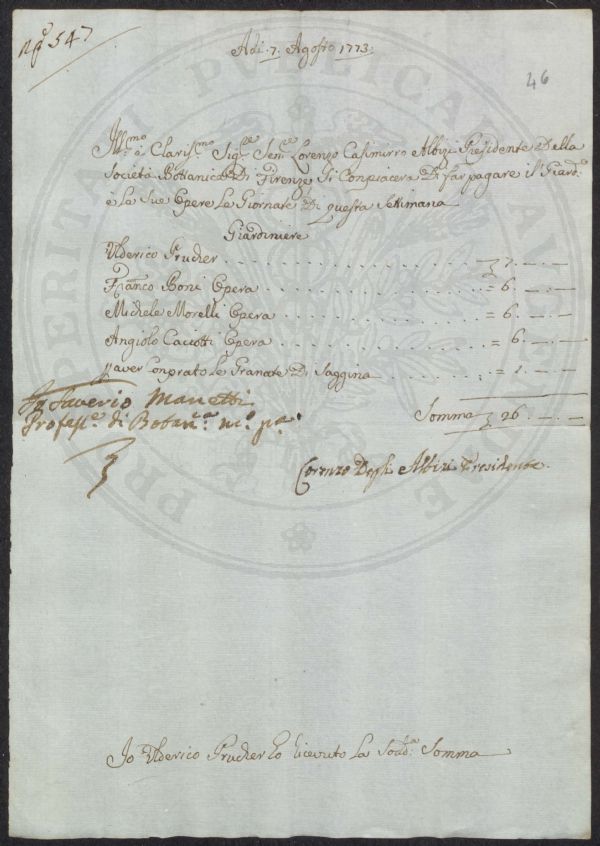 nº 547
Adi. 7. Agosto 1773.
46
Ill.mo e Claris.mo Sig.re Sen.re Lorenzo Casimirro Albizi Presidente Della
Società Bottanica Di Firenze Si Conpiacera Di far pagare il Giard.
e la Sue Opere Le Giornate Di questa Settimana
Giardiniere
Ulderico Prucher . . . . . . . . 7. — . —
Fran.co Boni Opera . . . . . . . . = 6. — . —
Michele Morelli Opera . . . . . . . . = 6. — . —
Angiolo Caciotti Opera . . . . . . . . = 6 — . —
p aver Conprato Le Granate Di Saggina . . . . . = 1. — . —
Saverio Manetti
Profess.e di Botan.ca m.o p.a
Somma 26. — . —
Lorenzo Degli Albizi Presidente.
Io Ulderico Prucher ho ricevuto La Sod.a Somma
PROSPERITATI PUBLICAE